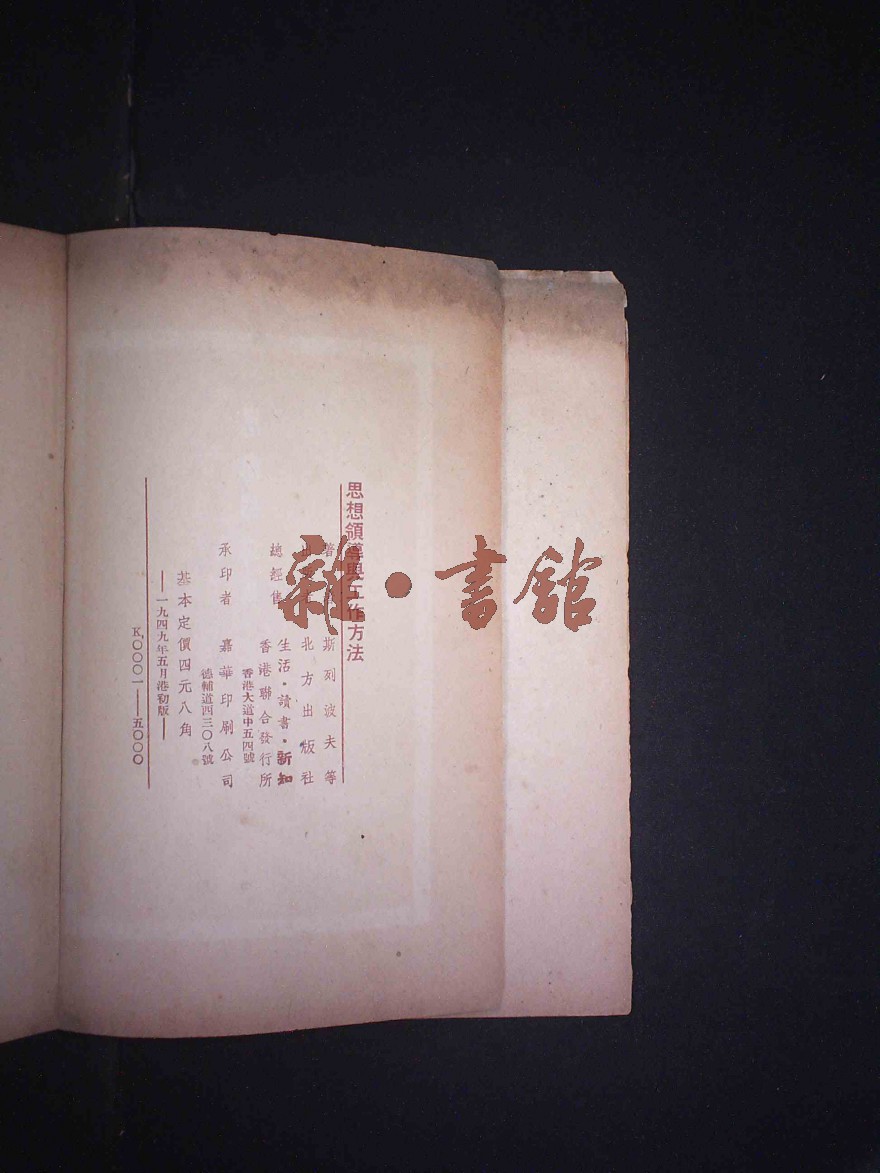 思想領導與工作方法
著 斯列波夫等
北方出版社
總經售 生活·讀書·新知
香港聯合發行所
香港大道中五四號
承印者 嘉華印刷公司
德輔道西三〇八號
基本定價四元八角
——一九四九年五月港初版——
K,〇〇〇一——五〇〇〇
雜·書館